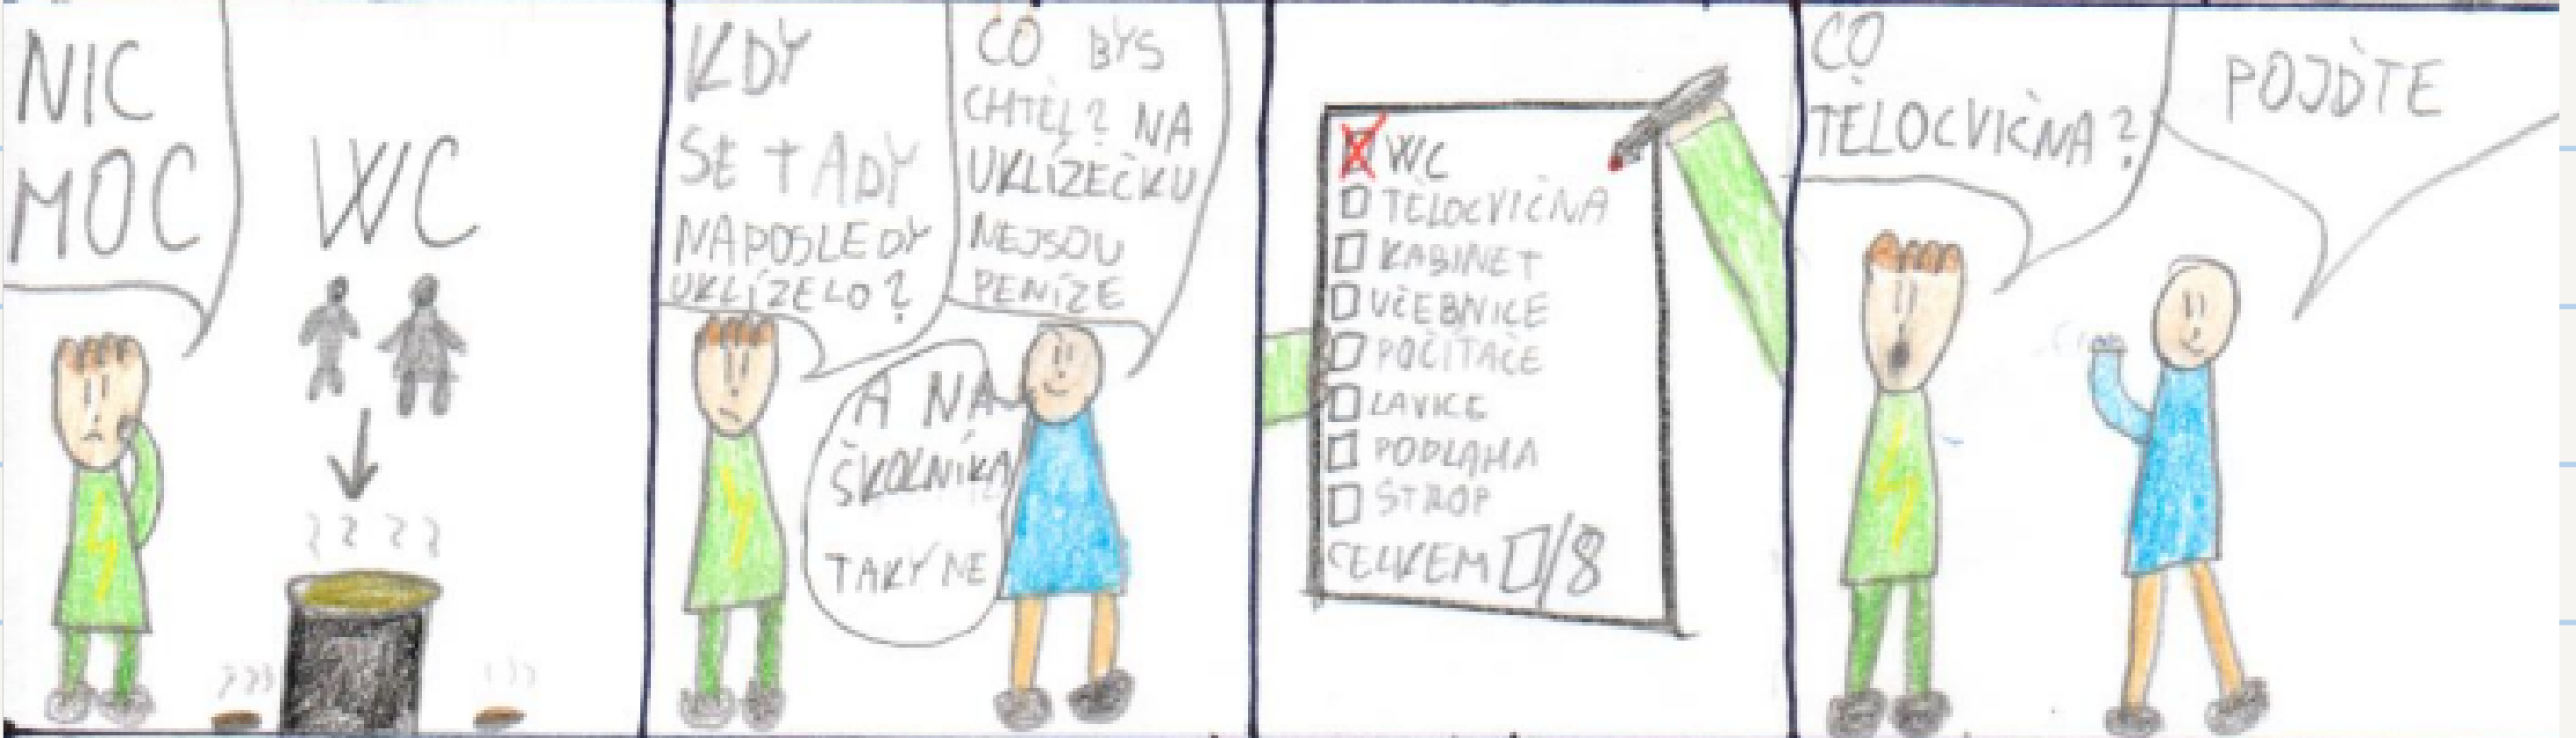 NIC
MOC
WC
KDY
SE TADY
NAPOSLEDY
UKLÍZELO?
CO BYS
CHTĚL? NA
UKLÍZEČKU
NEJSOU
PENÍZE
A NA
ŠKOLNÍKA
TAKY NE
WC
TĚLOCVIČNA
KABINET
UČEBNICE
POČÍTAČE
LAVICE
PODLAHA
STROP
CELKEM /8
CO
TĚLOCVIČNA?
POJĎTE